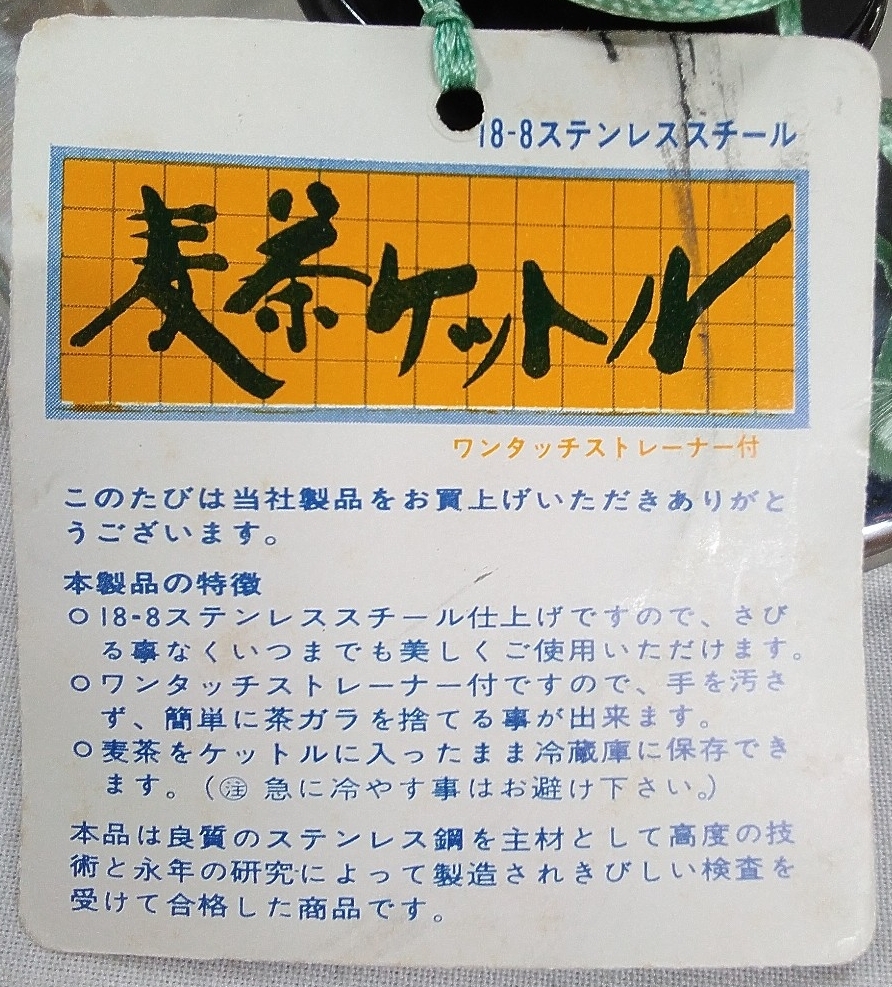 18-8ステンレススチール
麦茶ケットル
ワンタッチストレーナー付
このたびは当社製品をお買上げいただきありがと
うございます。
本製品の特徴
○18-8ステンレススチール仕上げですので、さび
る事なくいつまでも美しくご使用いただけます。
○ワンタッチストレーナー付ですので、手を汚さ
ず、簡単に茶ガラを捨てる事が出来ます。
○麦茶をケットルに入ったまま冷蔵庫に保存でき
ます。(㊟ 急に冷やす事はお避け下さい。)
本品は良質のステンレス鋼を主材として高度の技
術と永年の研究によって製造されきびしい検査を
受けて合格した商品です。